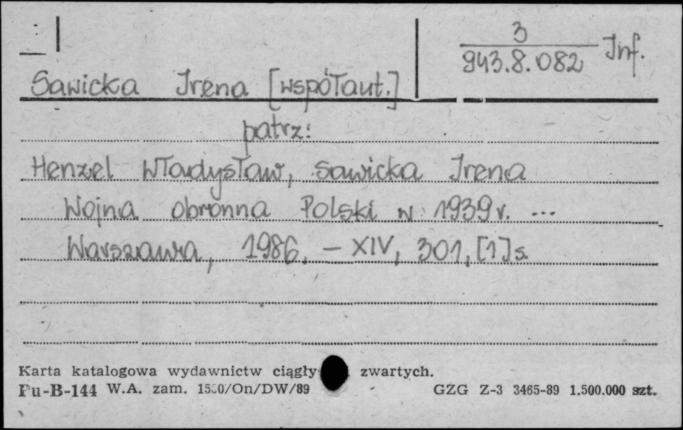 3
943.8.082 Inf.
Sawicka Irena [współaut.]
patrz:
Henzel Władysław, Sawicka Irena
Wojna obronna Polski w 1939 r. ...
Warszawa, 1986. – XIV, 301, [1] s.
Karta katalogowa wydawnictw ciągły zwartych.
Pu-B-144 W.A. zam. /On/DW/89 GZG Z-3 3465-89 1.500.000 szt.